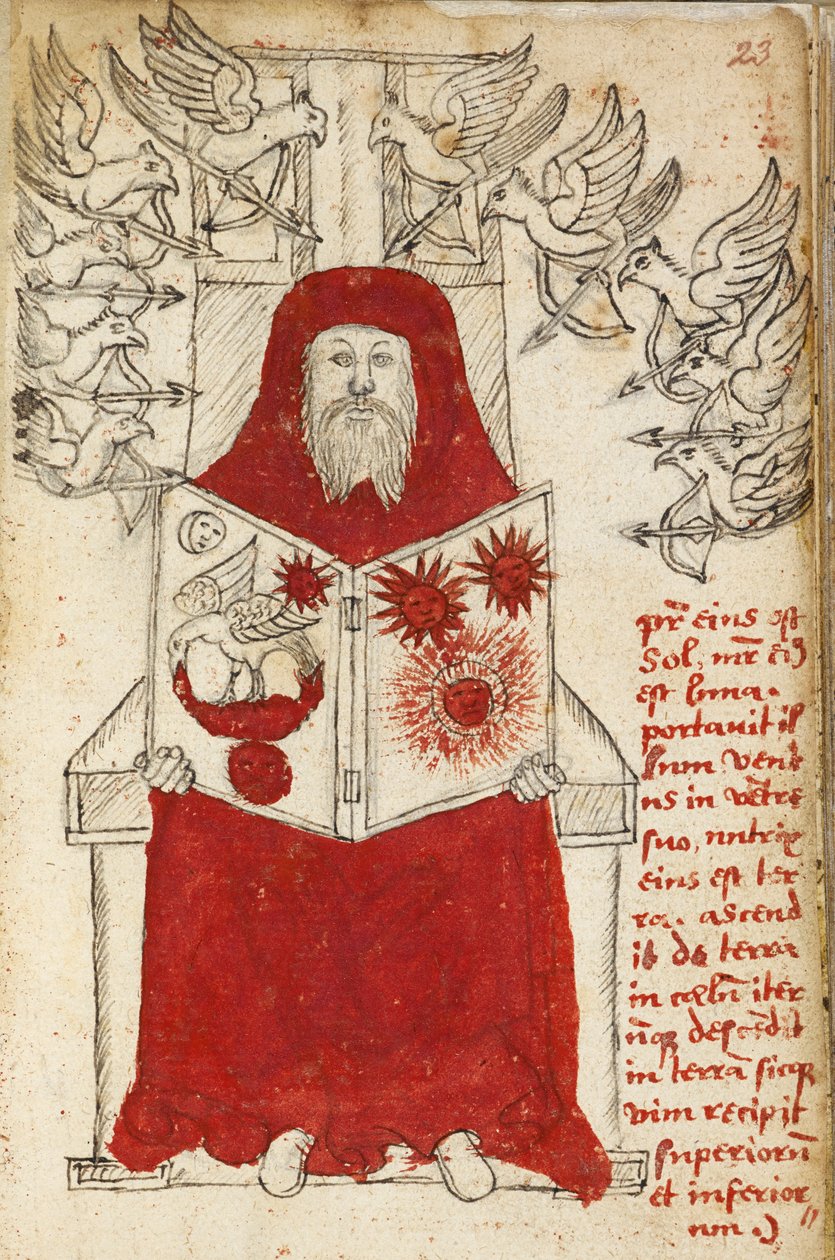 23
pr̃ eius est
Sol, mr̃ eiꝰ
est luna.
portauit il
lum vent
us in vẽtre
suo, nutrix
eius est ter
ra. ascend
it de terra
in cœlũ iter
ũqꝫ descẽdit
in terrã sicqꝫ
vim recipit
superiorũ
et inferior
um .)